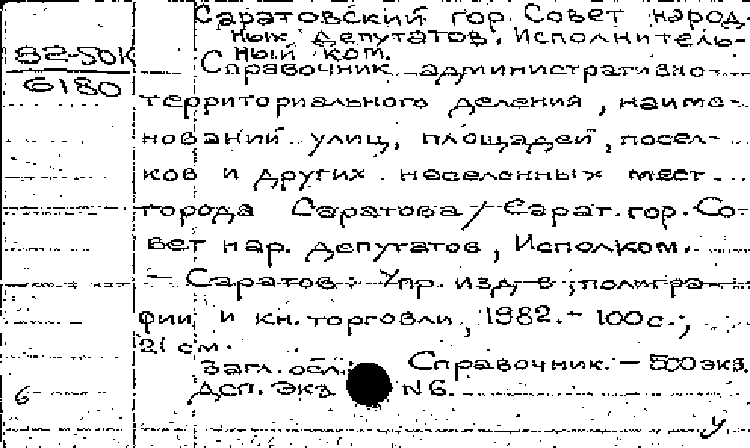 Саратовский гор. Совет народ-
ных депутатов. Исполнитель-
ный ком.
82-50К
6180
Справочник административно-
территориального деления, наиме-
нований улиц, площадей, посел-
ков и других населенных мест
города Саратова / Сарат. гор. Со-
вет нар. депутатов, Исполком.
– Саратов: Упр. изд-в, полигра-
фии и кн. торговли, 1982. – 100 с.;
21 см.
Загл. обл.: Справочник. – 500 экз.
Дсп. Экз N 6.
6
У